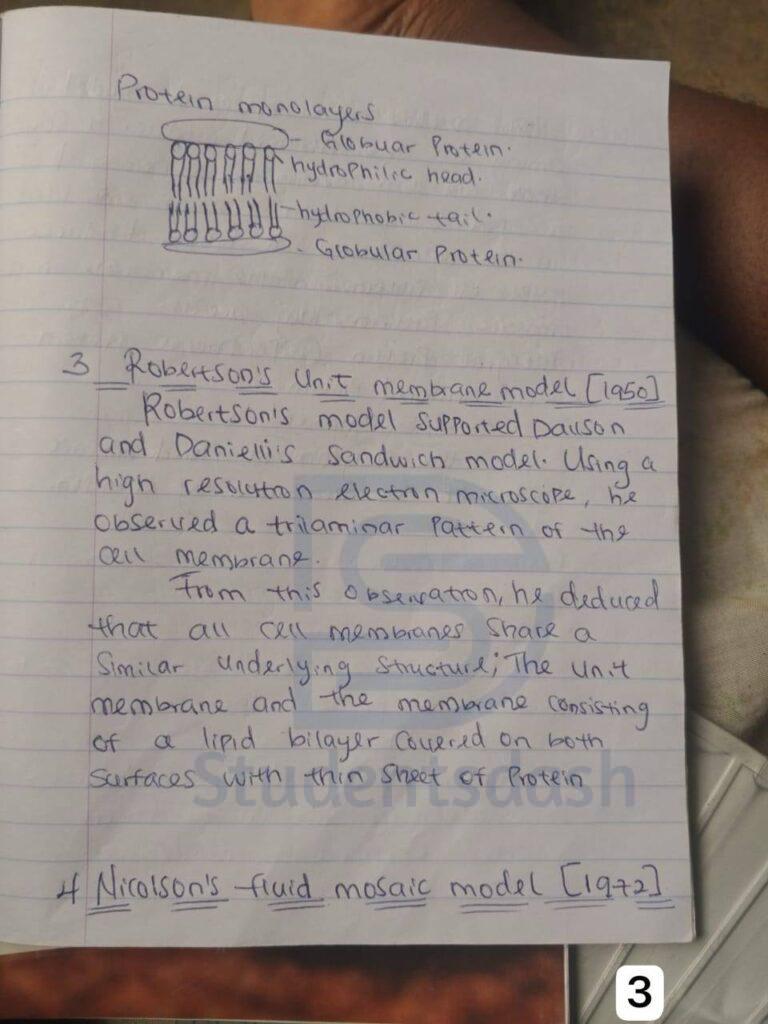 Protein monolayers
- Globuar Protein.
hydrophilic head.
-hydrophobic tail.
- Globular Protein.
3 Robertson's Unit membrane model [1950]
Robertson's model supported Dauson
and Danielli's Sandwich model. Using a
high resolution electron microscope, he
observed a trilaminar Pattern of the
cell membrane.
From this observation, he deduced
that all cell membranes share a
Similar underlying structure; The unit
membrane and the membrane consisting
of a lipid bilayer covered on both
Surfaces with thin sheet of Protein
Studentsdash
4 Nicolson's fluid mosaic model [1972]
3